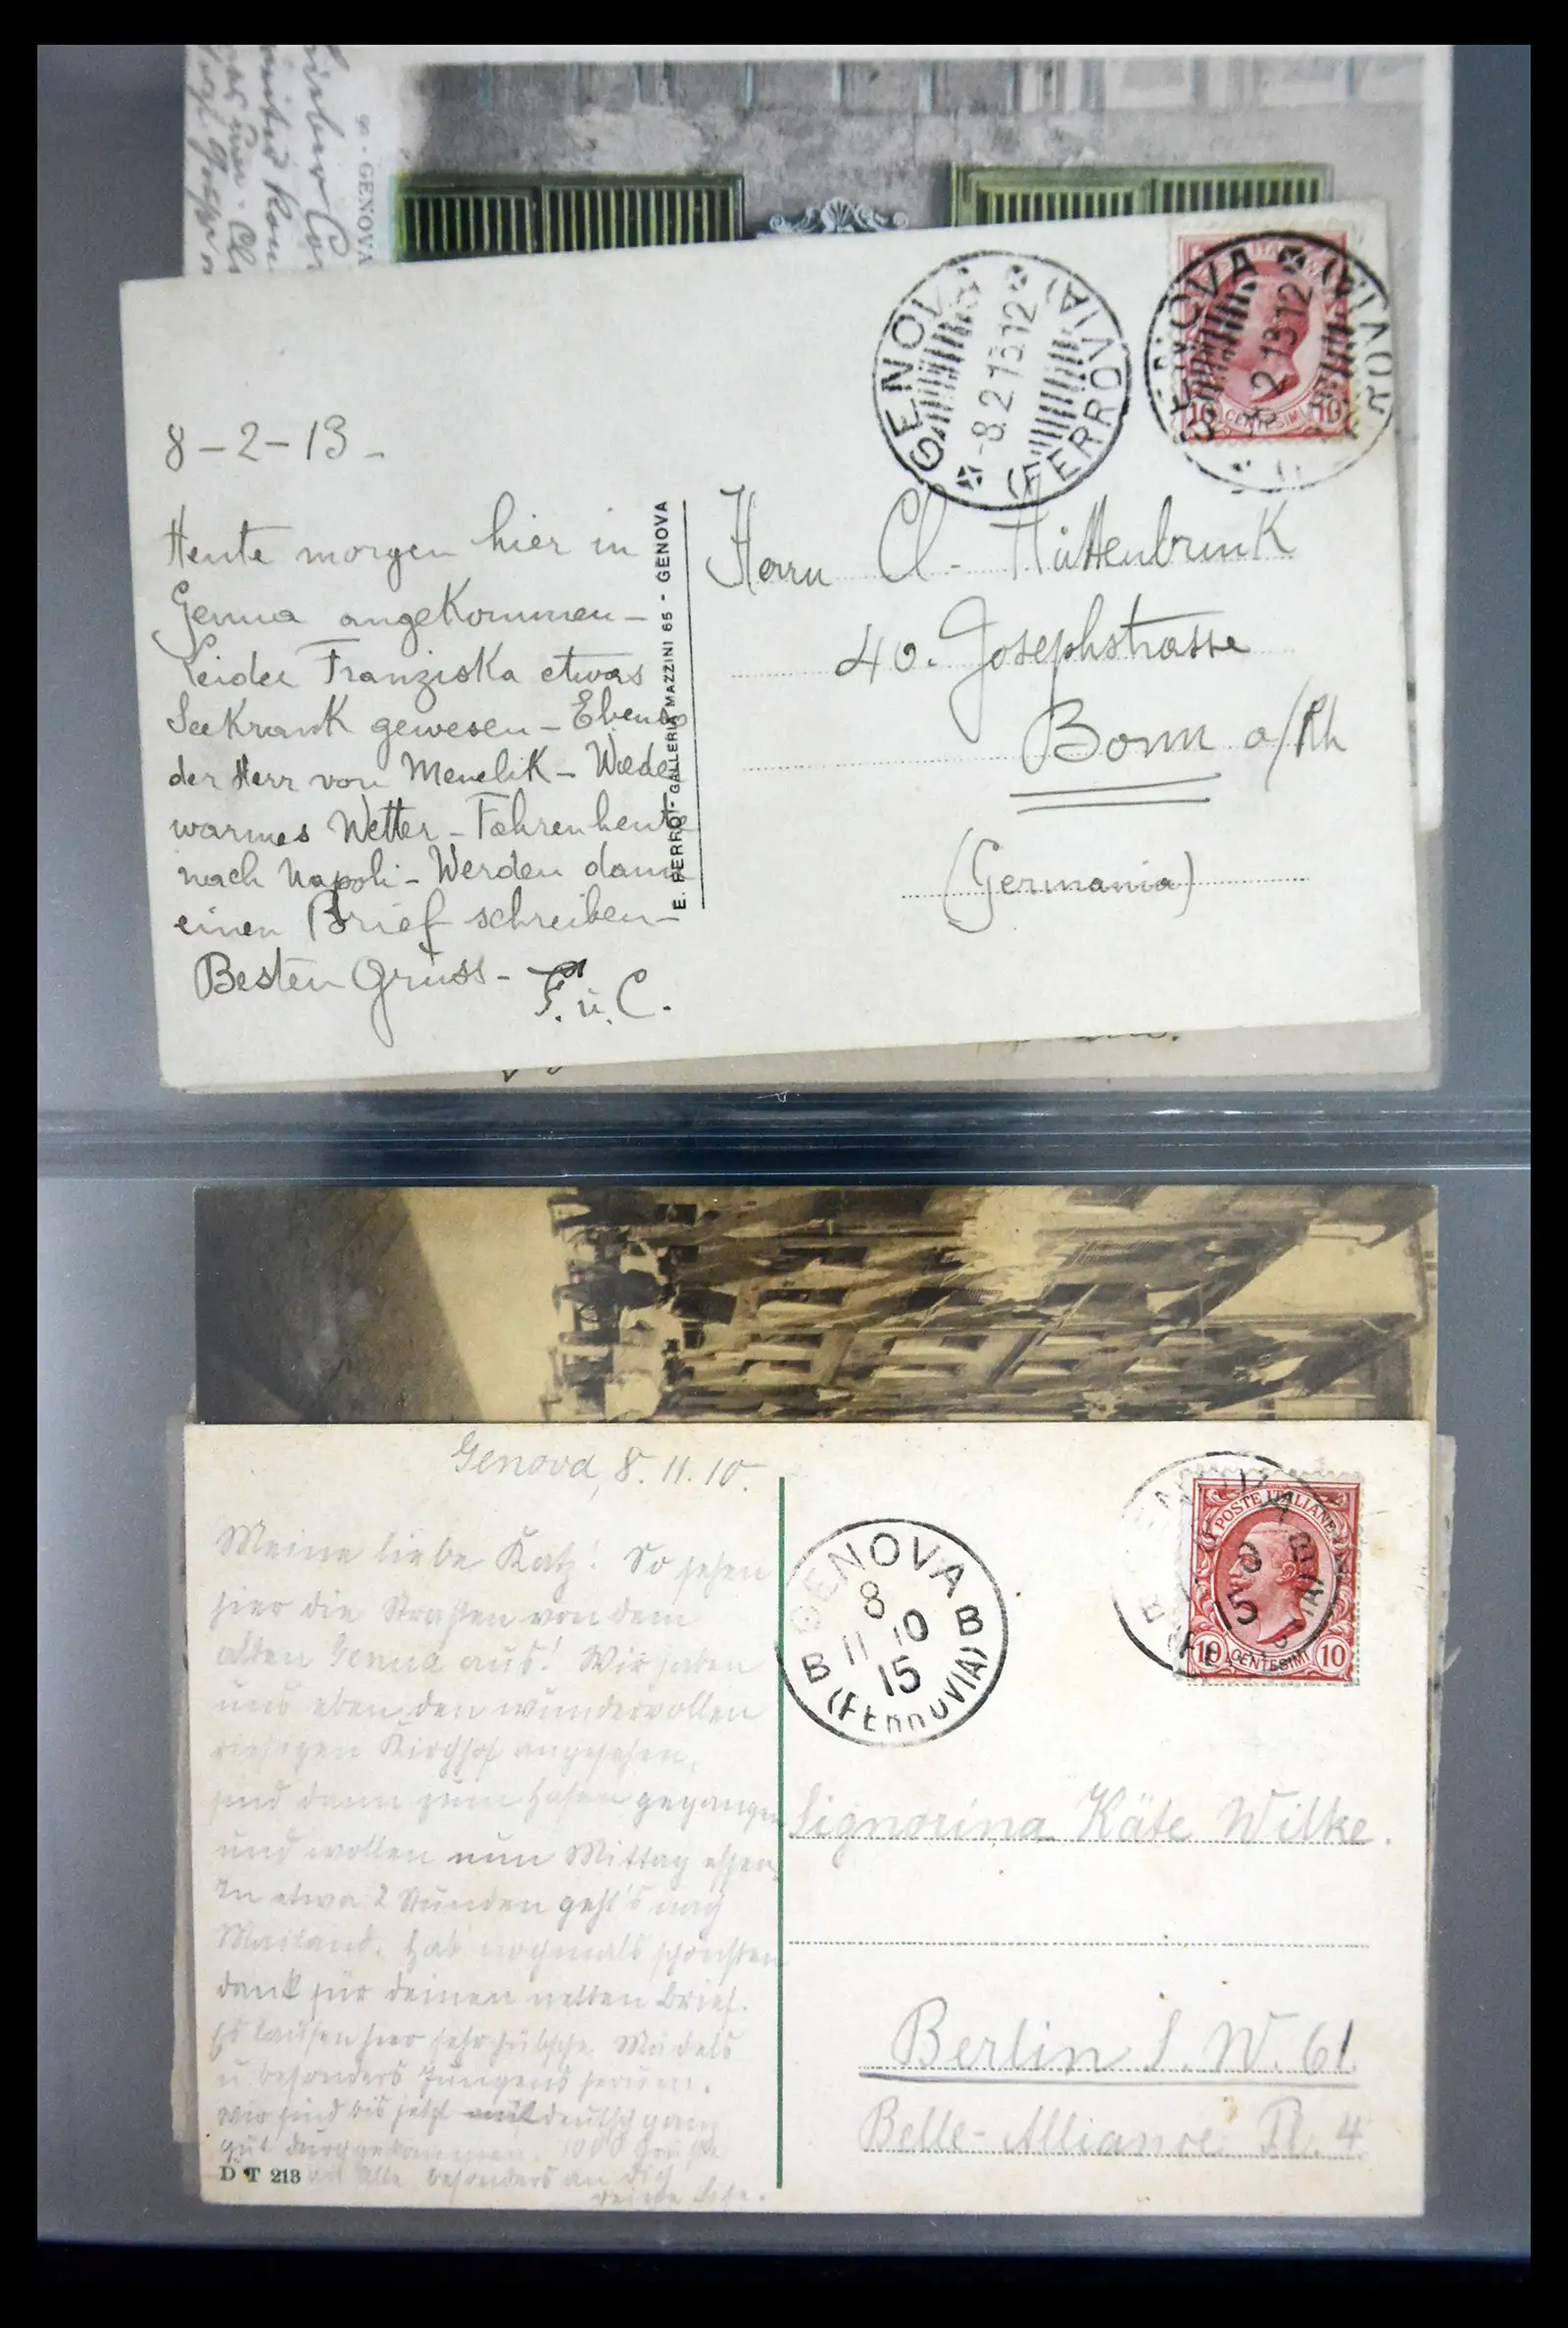 90 - GENOVA
GENOVA
-8.2.13.12
(FERROVIA)
GENOVA
2.13.12
10 CENTESIMI 10
8-2-13-
Heute morgen hier in
Genua angekommen-
Leider Franziska etwas
Seekrank gewesen - Ebenso
der Herr von Menelik -
warmes Wetter - Fahren heute
nach Napoli - Werden dann
einen Brief schreiben-
Besten Gruss -
F. u. C.
E. FERRO - GALLERIA MAZZINI 65 - GENOVA
Herrn Cl. Hüttenbrink
40. Josephstrasse
Bonn a/Rh
(Germania)
Genova, 8. 11. 10.
Meine liebe Katz! So sehen
hier die Straßen von dem
alten Genua aus! Wir haben
uns eben den wundervollen
riesigen Kirchhof angesehen,
sind dann zum Hafen gegangen
und wollen nun Mittag essen.
In etwa 2 Stunden geht's nach
Mailand. Hab nochmals schönsten
Dank für deinen netten Brief.
Es laufen hier sehr hübsche Mädels
u. besonders Jungens herum.
Wir sind bis jetzt mit deutsch ganz
gut durchgekommen. 1000 Grüße
an alle besonders an dich
deine
D T 213
GENOVA
8
11 10
15
B B
(FERROVIA)
POSTE ITALIANE
10 CENTESIMI 10
Signorina Käte Wilke.
Berlin S. W. 61
Belle-Alliance Pl. 4